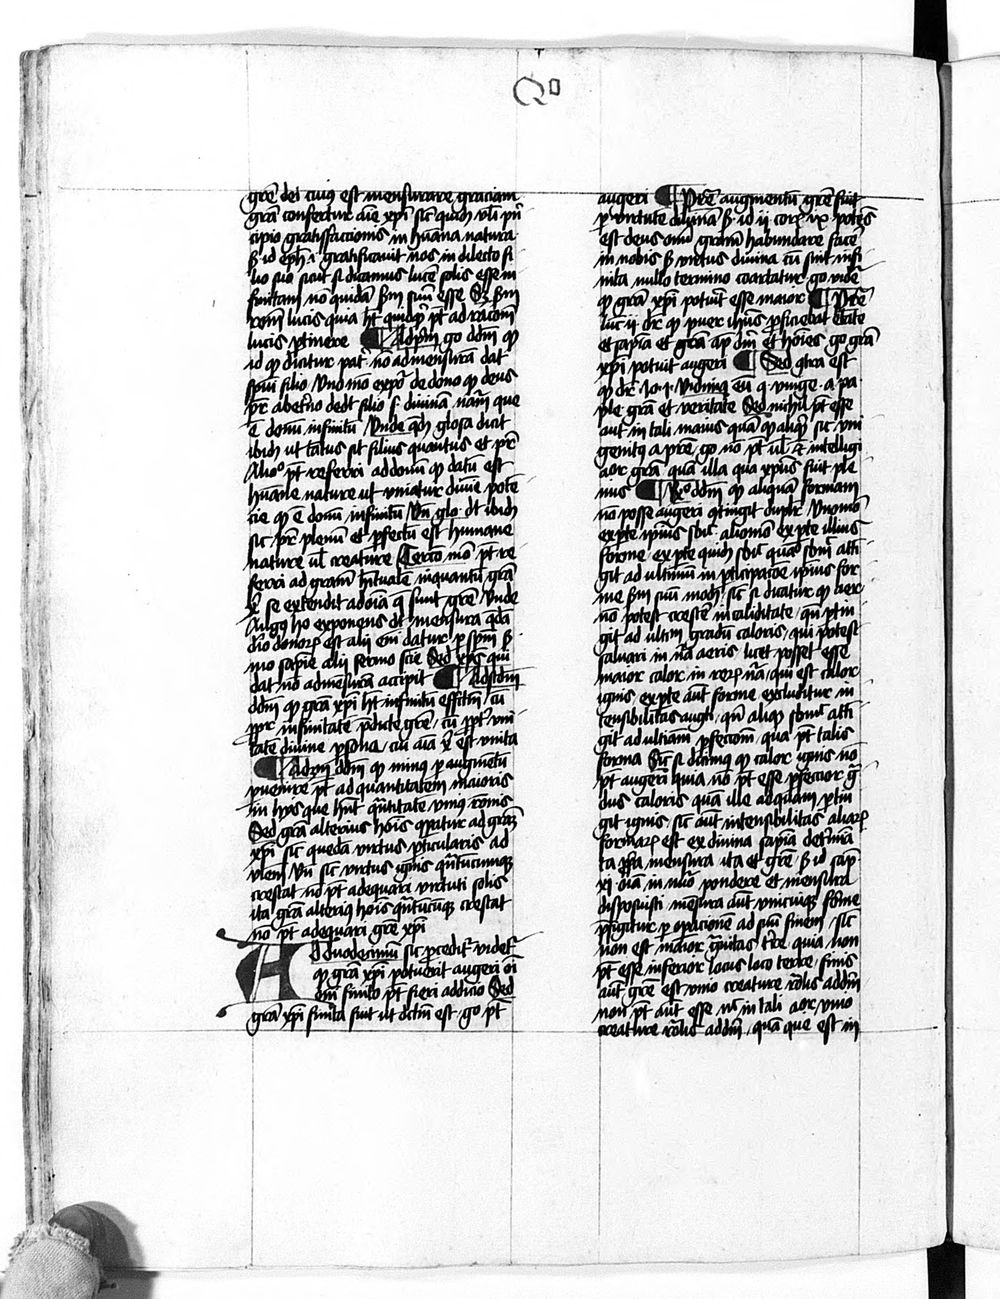 Qo
grē dei cuius est mensurare graciam
grā confertur aīe xpi sic̄ quid̄ vli pn̄
cipio gratificacionis in hūana natura
id eph i gratificauit nos in dilecto fi
lio suo sicut si dicamus lucē solis esse in
finitam nō quidā scdm suū esse Sz scdm
rōem lucis quia ht quidqd pt ad racōem
lucis ptinere Ad pm g̊ ddm qp
id qp dicitur pat nō ad mensurā dat
spm filio vno mo expor̄ de dono qp deus
pr ab eterno dedit filio s divinā nām que
ē donū infinitū Unde qd̄ glosa dicit
ibidem ut tātus sit filius quantus et pr̄
Alio pt referri ad donū qp datū est
hūane nature ut uniatur divine psone
qp ē donū infinitū Un̄ glo dt ibidē
sic̄ pr̄ plenū et pfectū est humane
nature ul creature Tercio mo pt re
ferri ad grām hitualē inquantū grā
xpi se extendit ad oīa q̄ sunt grē Unde
Augꝰ hoc exponens dt mensura qdā
diuisio donorum est alii enī datur p spm s
mo sapie alii sermo scie Sed xps qui
dat nō ad mensurā accipit Ad scdm
ddm qp grā xpi ht infinitū effctm cū
ppr infinitatē pdicte grē cū ppr vni
tatē divine psone cui aīa xpi est vnita
Ad 3m ddm qp minus p augmētū
puenire pt ad quantitatem maioris
in hiis que hn̄t qntitatē vniꝰ rōnis
Sed grā alterius hōis cpatur ad grām
xpi sic̄ quedā virtus pticularis ad
vlem Vn̄ sic̄ virtus ignis qn̄tucumqꝫ
crescat nō pt adequari virtuti solis
ita grā alteriꝰ hōis qn̄tucūqꝫ crescat
nō pt adequari grē xpi
Ad duodecimū sic pceditr videtr
qp grā xpi potuerit augeri oī
enī finito pt fieri addicio Sed
grā xpi finita fuit ut dctm est g̊ pt
augeri Pretē augmentū grē fuit
p virtutē divinā s id ii cor̄ ix potēs
est deus oīm grām habundare facē
in nobis s virtus divina cū sint infi
nita nullo termino coartatur g̊ videt̄
qp grā xpi potuit esse maior Pretē
luc ii dr qp puer ihūs pficiebat etate
et sapīa et grā ap dm̄ et hoīes g̊ grā
xpi potuit augeri Sed cntra est
qp dr Io i Vidimꝰ eū q vnige a pa
ple grā et veritate Sed nichil pt esse
aut intali maius quā qp aliqs sit vni
genitꝰ a pre g̊ nō pt ul ec̄ intelligi
aior grā quā illa qua xpus fuit ple
nus Ro ddm qp aliquā formam
nō posse augeri qtingit duplr Vno mo
ex pte ipsius sbi alio mo ex pte illius
forme ex pte quid sbi quā sbm atti
git ad ultimū in pticipacōe ipsius for
me scdm suū modū sic̄ si dicatur qp aer
nō potest crescere in caliditate qn ptin
git ad ultm gradū caloris qui potest
saluari in nā aeris licet posset esse
maior calor in rerum nā qui est calor
ignis ex pte aut forme excluditur in
tensibilitas augti qn̄ aliqd sbm atti
git ad ultimā pfeccōem qua pt talis
forma Sic̄ si dicimꝰ qp calor ignis nō
pt augeri quia nō pt esse pfectior g̊
dus caloris quā ille ad quam ptin
git ignis sic̄ aut intensibilitas aliarum
formarum est ex divina sapiā detmia
ta xpa mensura ita et grē s id sap
xi oīa in nuō pondere et mensura
disposuisti mesura aut vnicuiqꝫ forme
pfigitur p opacionē ad suū finem sic̄
non est maior grauitas tre quia non
pt esse inferior locus loco terre finis
aut grē est vnio creature rōnlis ad dm
non pt aut esse nc intali aor vnio
creature rōnlis ad dm quā que est in